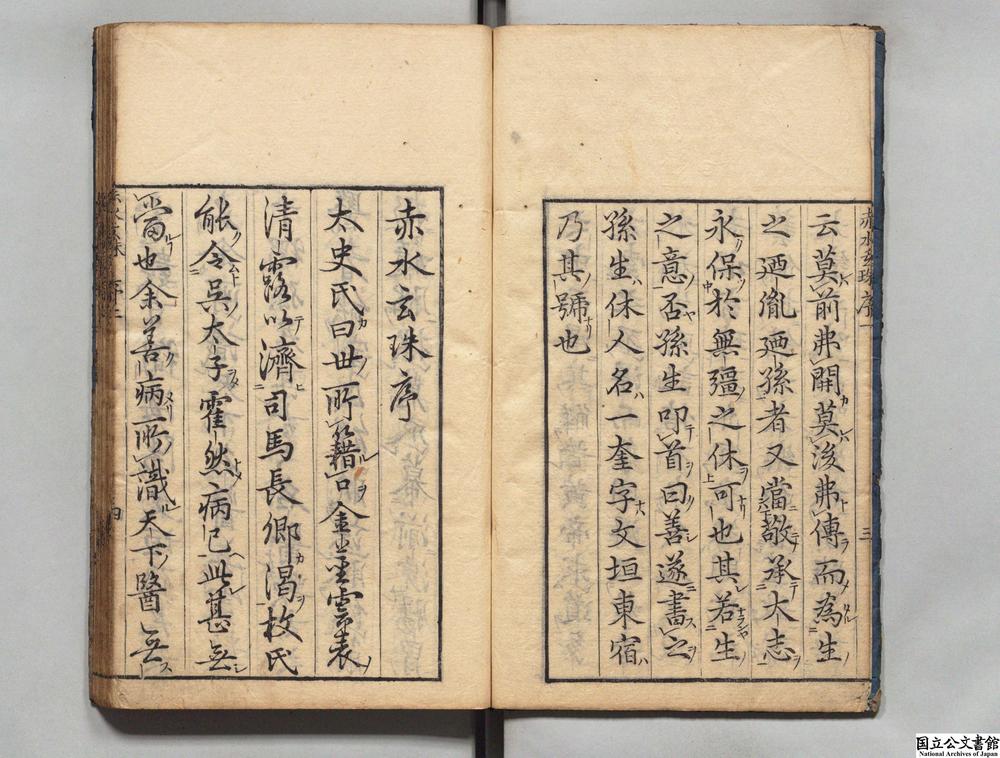 赤水玄珠序一 三
云莫前弗開莫後弗傳而為生
之廼胤廼孫者又當敬承太志
永保於無彊之休可也其若生
之意否孫生叩首曰善遂書之
孫生休人名一奎字文垣東宿
乃其號也
赤水玄珠序
太史氏曰世所籍口金莖雲表
清露以濟司馬長卿渴枚氏
能令吳太子霍然病已此甚無
當也余善病所識天下醫無
赤水玄珠 序二 四
国立公文書館
National Archives of Japan